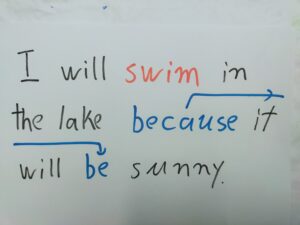 I will swim in
the lake because it
will be sunny.